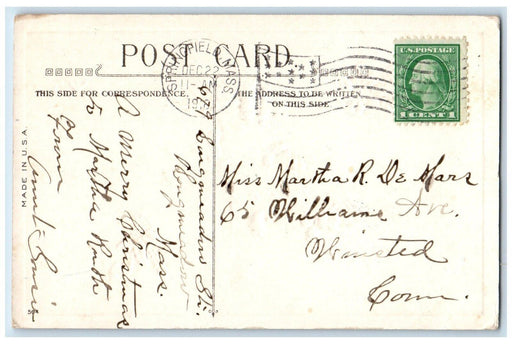 POST CARD.
THIS SIDE FOR CORRESPONDENCE.
THE ADDRESS TO BE WRITTEN
ON THIS SIDE
SPRINGFIELD, MASS
DEC 22
AM
U.S. POSTAGE
1 CENT 1
MADE IN U.S.A.
A Merry Christmas
to Martha Ruth
From
Aunt Susie
Longmeadow St.
Longmeadow
Mass.
Miss Martha R. De Mars
65 Williams Ave.
Winsted
Conn.